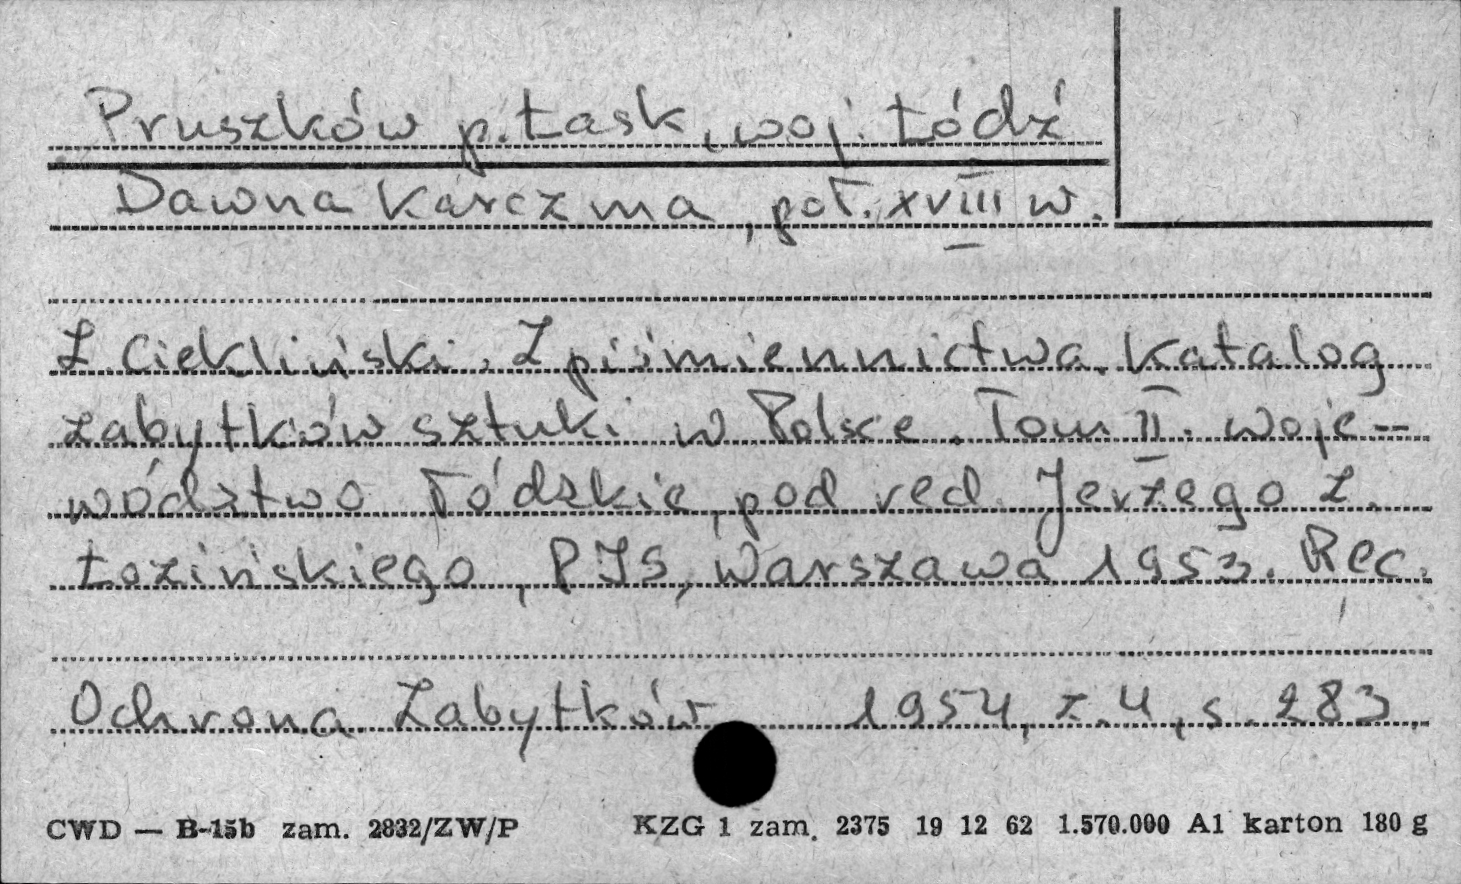 Pruszków p. Łask, woj. Łódź
Dawna Karczma, poł. XVIII w.
Z. Ciekliński. Z piśmiennictwa. Katalog
zabytków sztuki w Polsce. Tom II. woje-
wództwo łódzkie, pod red. Jerzego Z.
Łozińskiego, PIS, Warszawa 1953. Rec.
Ochrona Zabytków 1954, z. 4, s. 283
CWD — B-15b zam. 2832/ZW/P KZG 1 zam. 2375 19 12 62 1.570.000 A1 karton 180 g